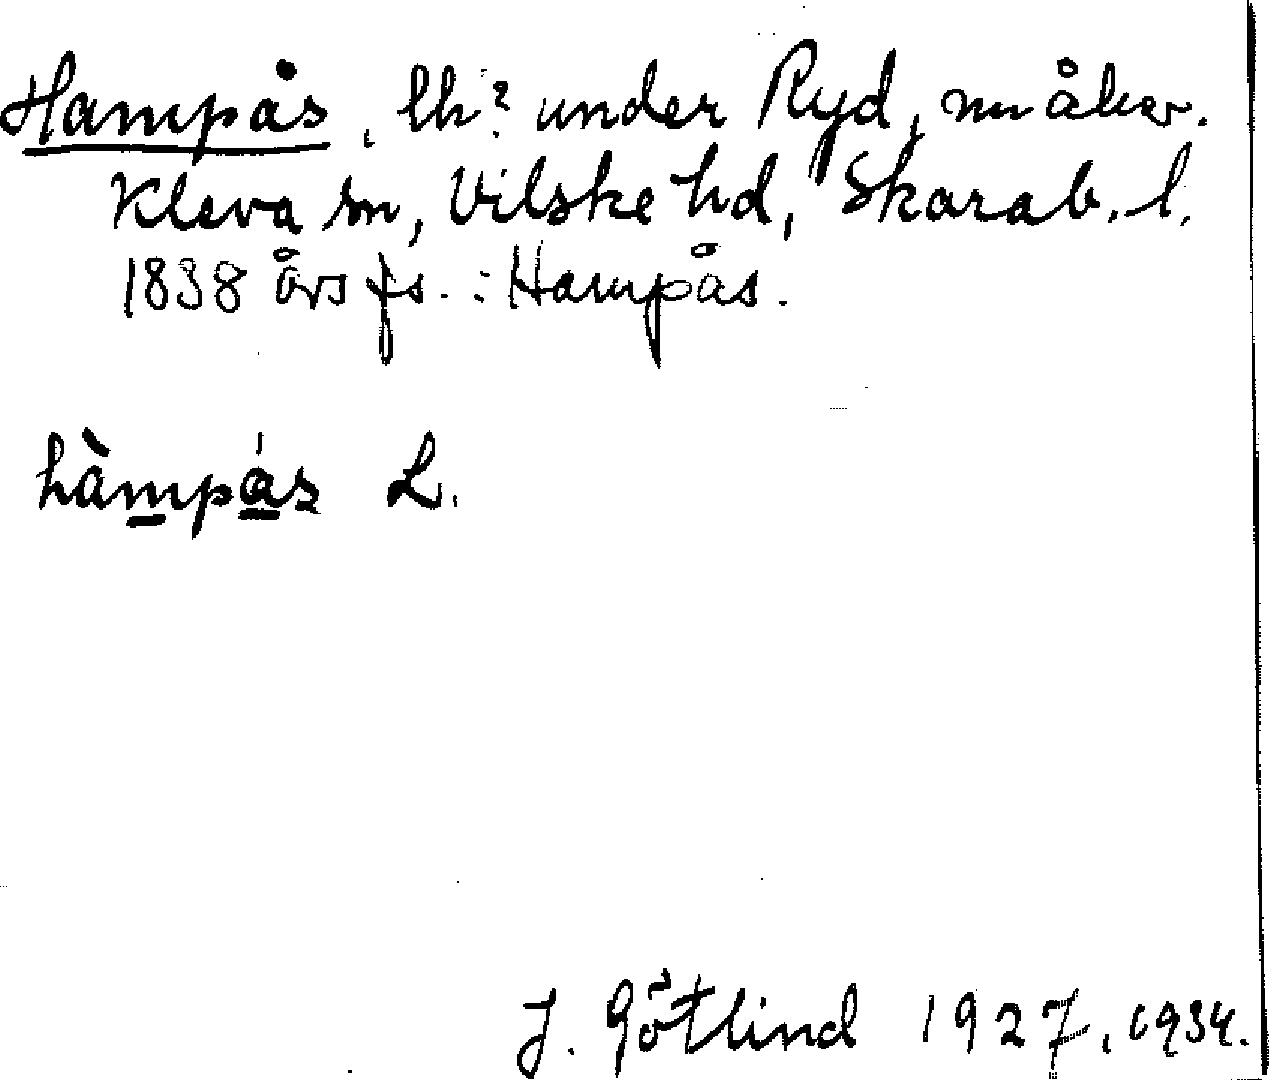 Hampås, lh? under Ryd, nu åker.
Kleva sn, Vilske hd, Skarab. l.
1838 års fs. : Hampås.
hàmpás L.
J. Götlind 1927, 1934.